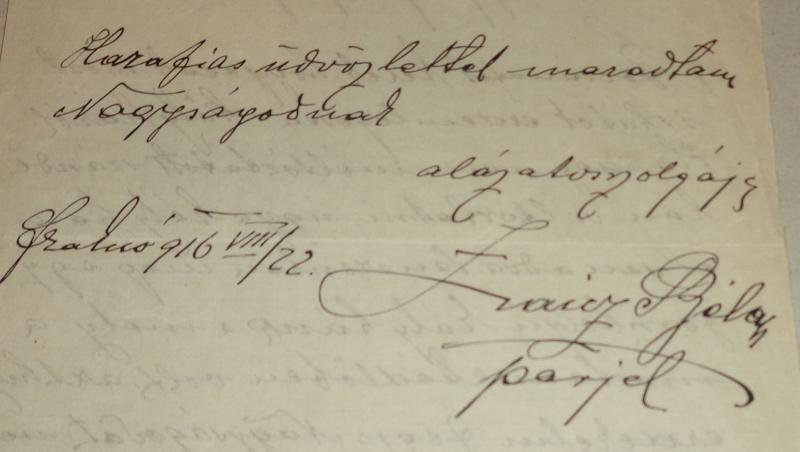 Hazafias üdvözlettel maradtam
Nagyságodnak
alázatos szolgája
916 VIII/22.
Béla